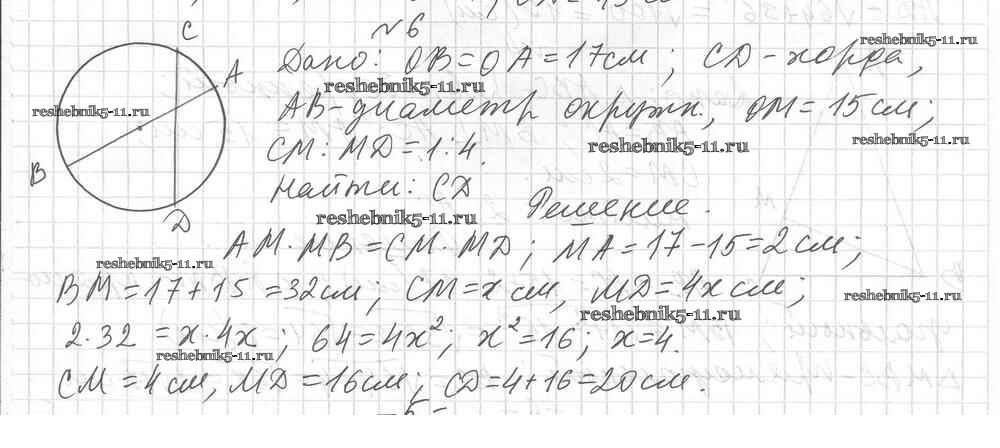 №6
C
Дано: OB=OA=17см; CD-хорда,
A
AB-диаметр окружн., OM=15см;
CM:MD=1:4.
B
Найти: CD
D
Решение.
AM·MB=CM·MD; MA=17-15=2см;
BM=17+15=32см, CM=x см, MD=4x см;
2·32=x·4x; 64=4x²; x²=16; x=4.
CM=4см, MD=16см; CD=4+16=20см.
reshebnik5-11.ru
reshebnik5-11.ru
reshebnik5-11.ru
reshebnik5-11.ru
reshebnik5-11.ru
reshebnik5-11.ru
reshebnik5-11.ru
reshebnik5-11.ru
reshebnik5-11.ru
reshebnik5-11.ru